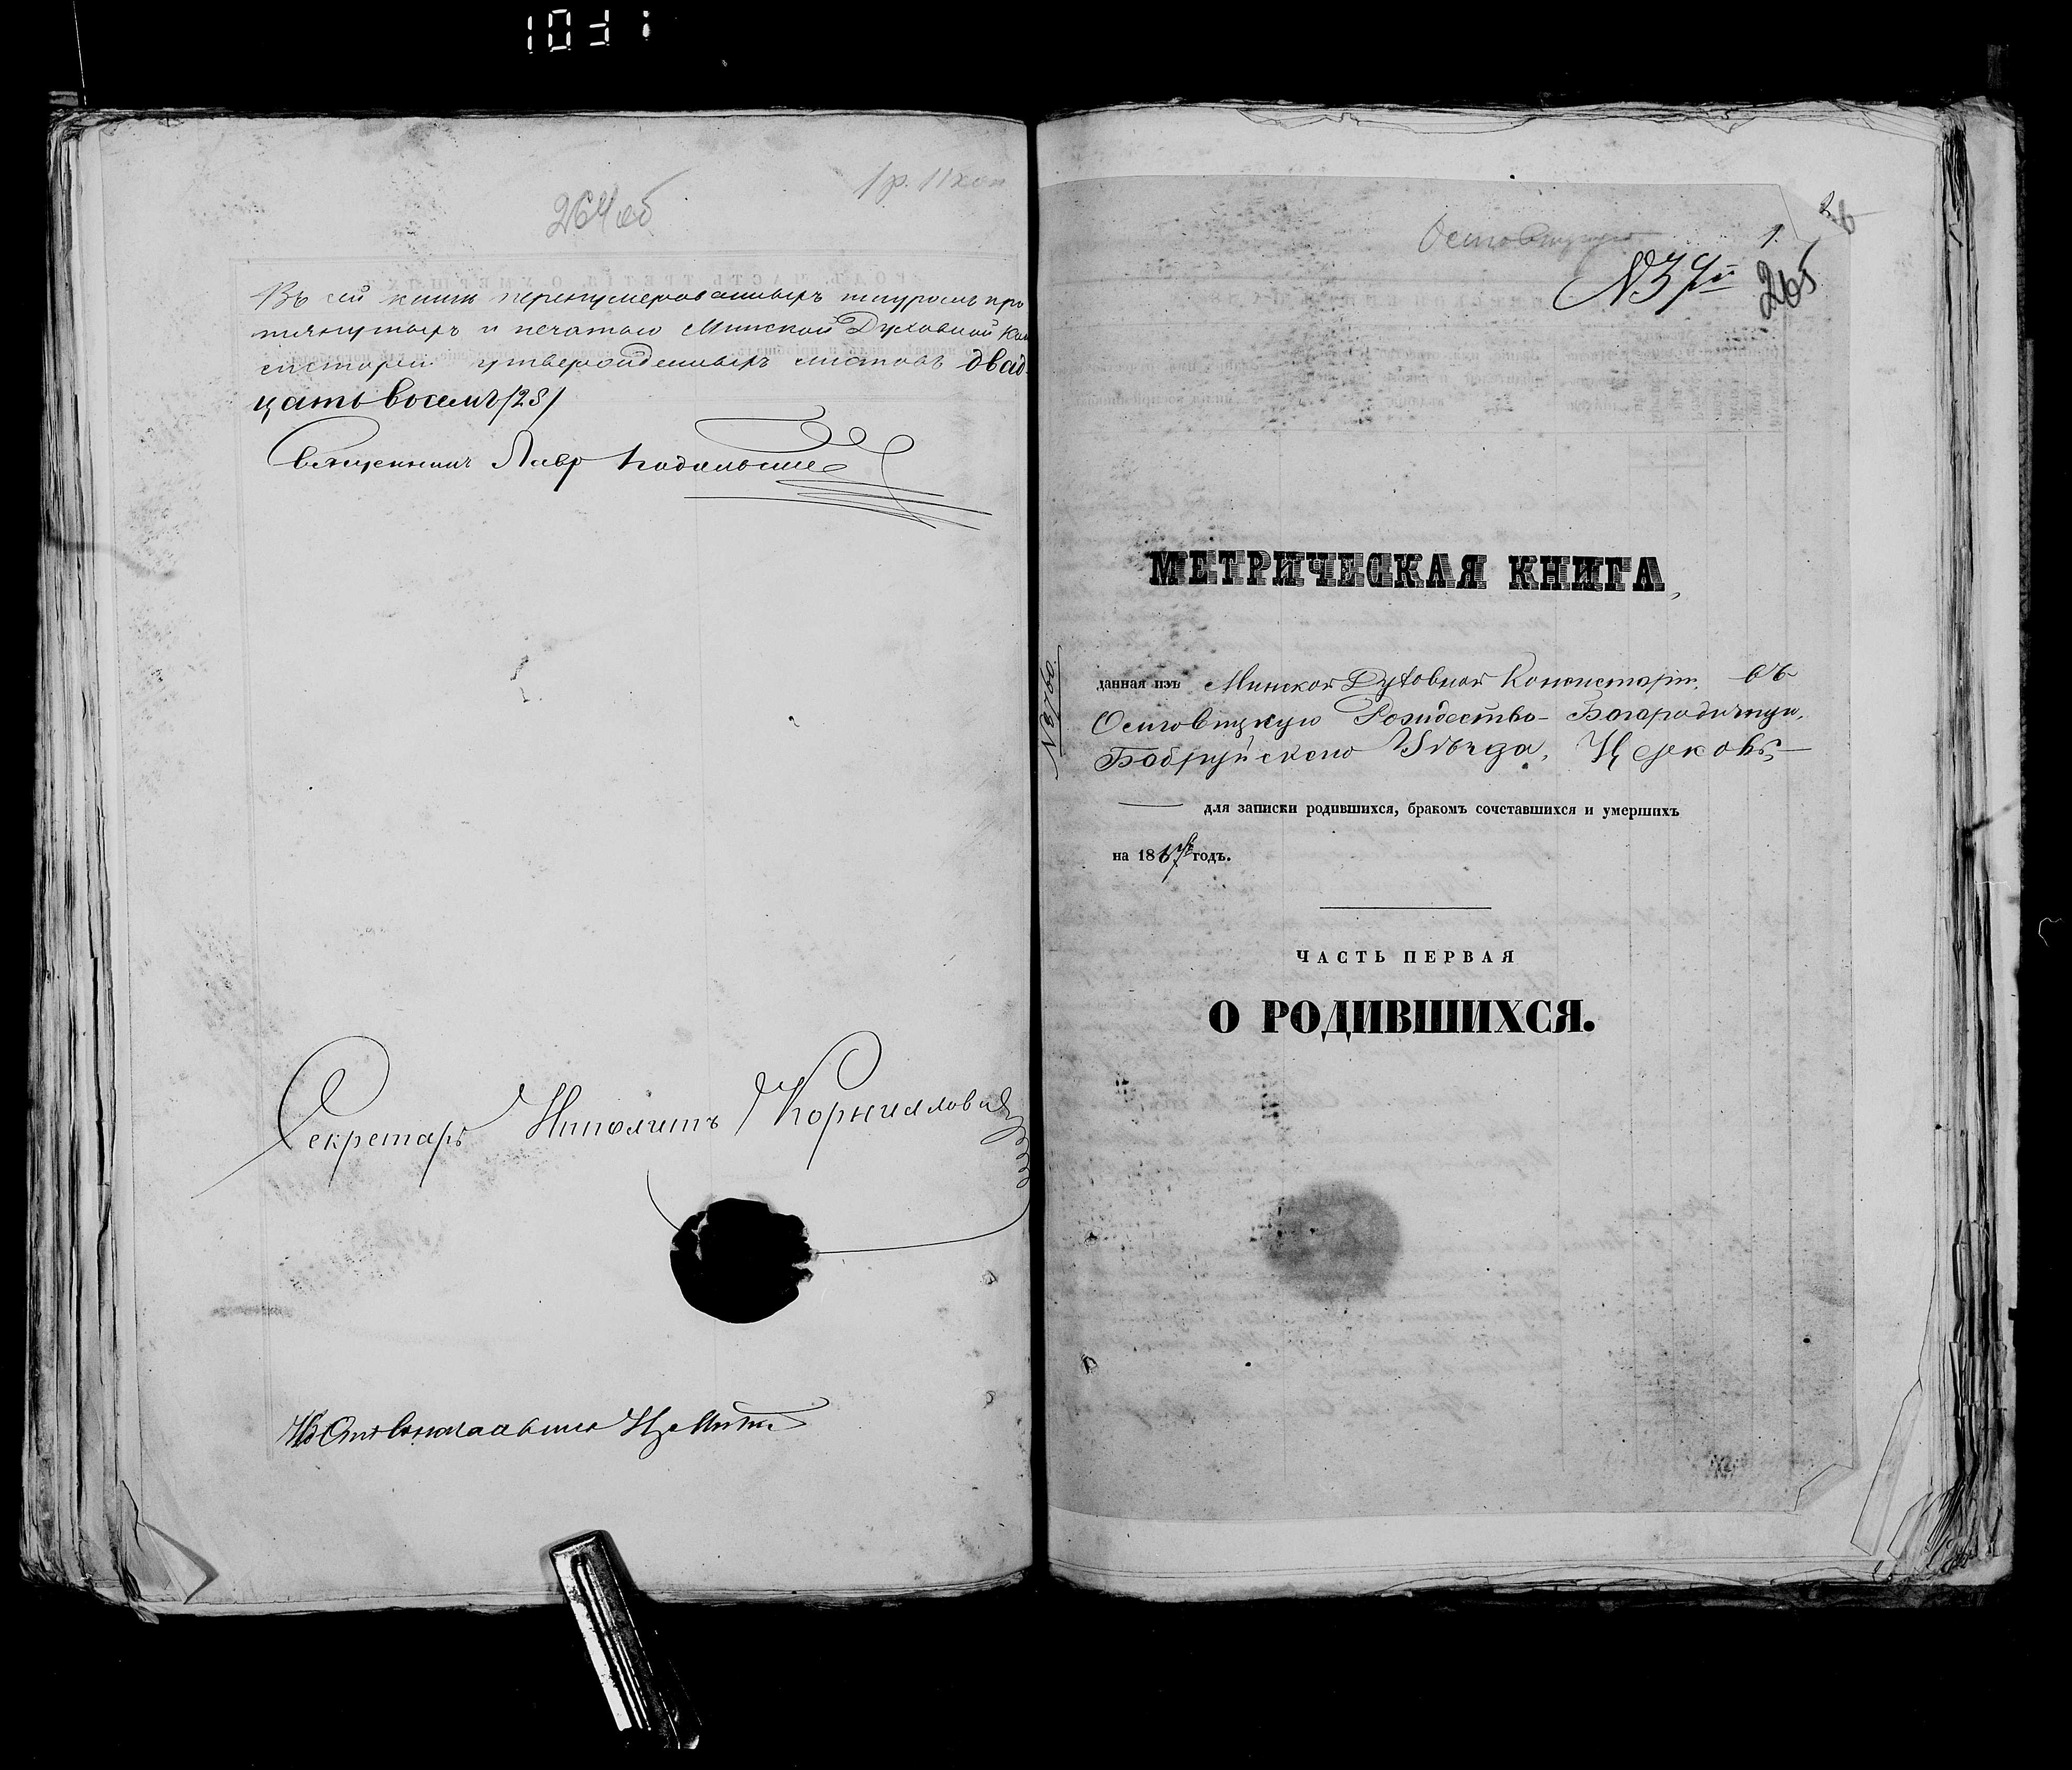 264 об
1 р. 11 коп
Въ сей книги перенумерованныхъ шнуромъ про
тянутыхъ и печатью Минской Духовной Кон
систоріи утвержденныхъ листовъ двад-
цать восемь /28/
Священникъ Лавр
Секретарь Ипполитъ Корнилловичъ
1.
N 34й
265
МЕТРИЧЕСКАЯ КНИГА,
N 8760.
данная изъ Минской Духовной Консисторіи въ
Осовецкую Рождество-Богородичную,
Бобруйскаго Уѣзда, Церковь
для записки родившихся, бракомъ сочетавшихся и умершихъ
на 1867й годъ.
ЧАСТЬ ПЕРВАЯ
О РОДИВШИХСЯ.